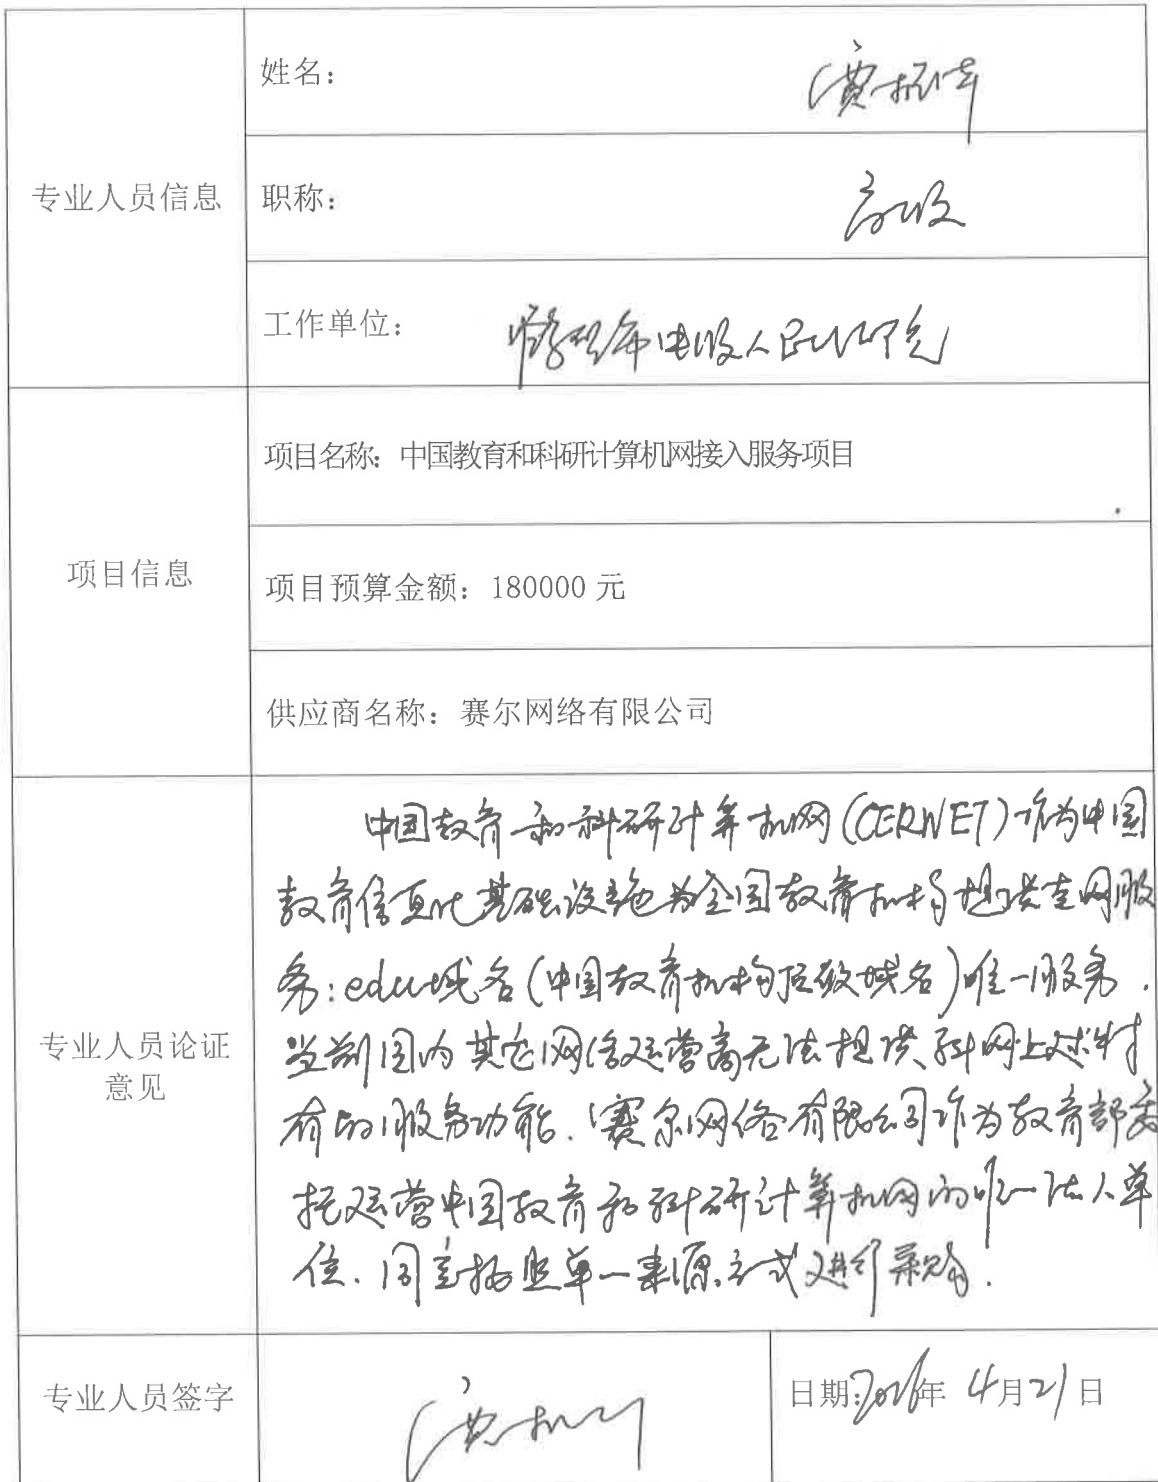 专业人员信息
姓名：
职称：
高级
工作单位：
项目信息
项目名称：中国教育和科研计算机网接入服务项目
项目预算金额：180000 元
供应商名称：赛尔网络有限公司
专业人员论证
意见
中国教育和科研计算机网(CERNET)作为中国
教育信息化基础设施为全国教育机构提供主网服
务:edu域名(中国教育机构顶级域名)唯一服务.
当前国内其它网络运营商无法提供科网上述特
有的服务功能.赛尔网络有限公司作为教育部委
托运营中国教育和科研计算机网的唯一法人单
位.同意按照单一来源方式进行采购.
专业人员签字
日期: 年 4月21日